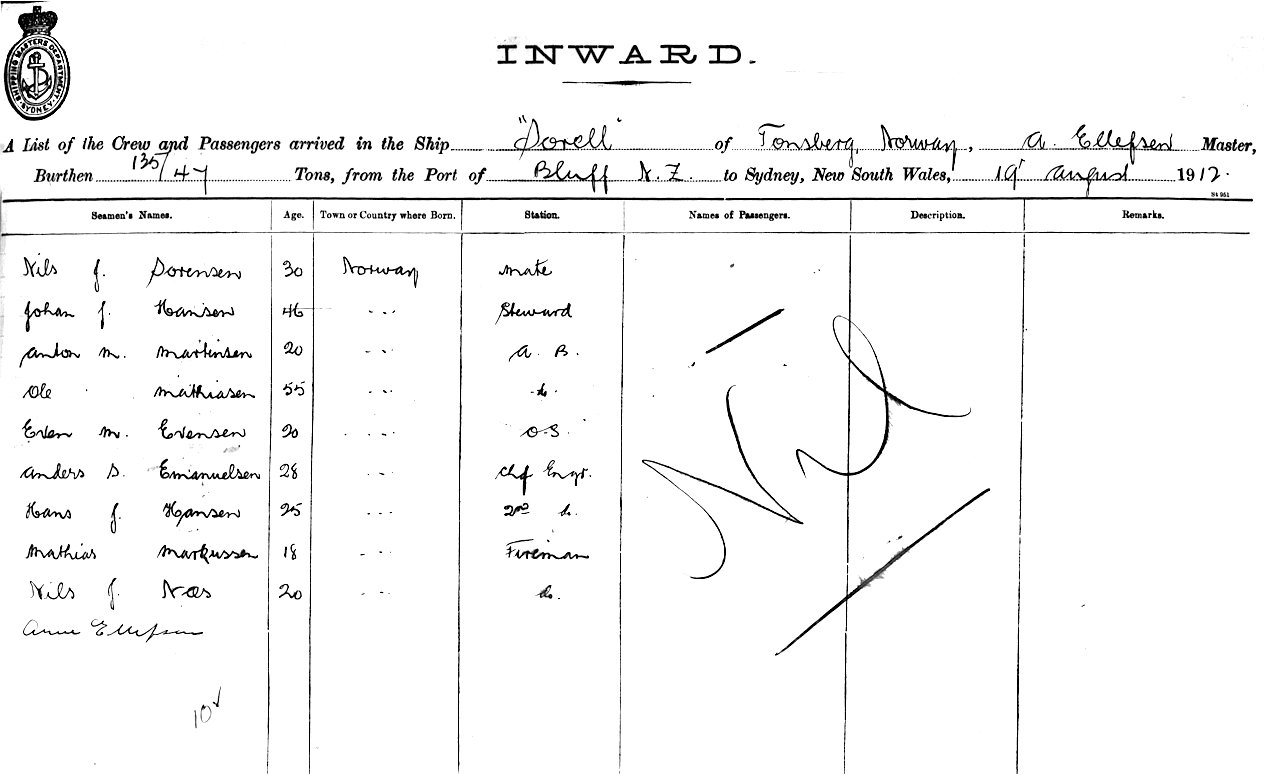 SHIPPING MASTERS DEPARTMENT. SYDNEY.
INWARD.
A List of the Crew and Passengers arrived in the Ship "Sorell" of Tonsberg, Norway, A. Ellefsen Master,
Burthen 135/47 Tons, from the Port of Bluff N.Z. to Sydney, New South Wales, 19 August 1912.
St 951
Seamen's Names. Age. Town or Country where Born. Station. Names of Passengers. Description. Remarks.
Nils J. Sorensen 30 Norway Mate
Johan J. Hansen 46 " Steward
Anton M. Martinsen 20 " A. B.
Ole Mathiasen 55 " do.
Even M. Evensen 20 " O.S.
Anders S. Emanuelsen 28 " Chf Engr.
Hans J. Hansen 25 " 2nd do.
Mathias Markussen 18 " Fireman
Nils J. Næs 20 " do.
Arne Ellefsen
Nil
10